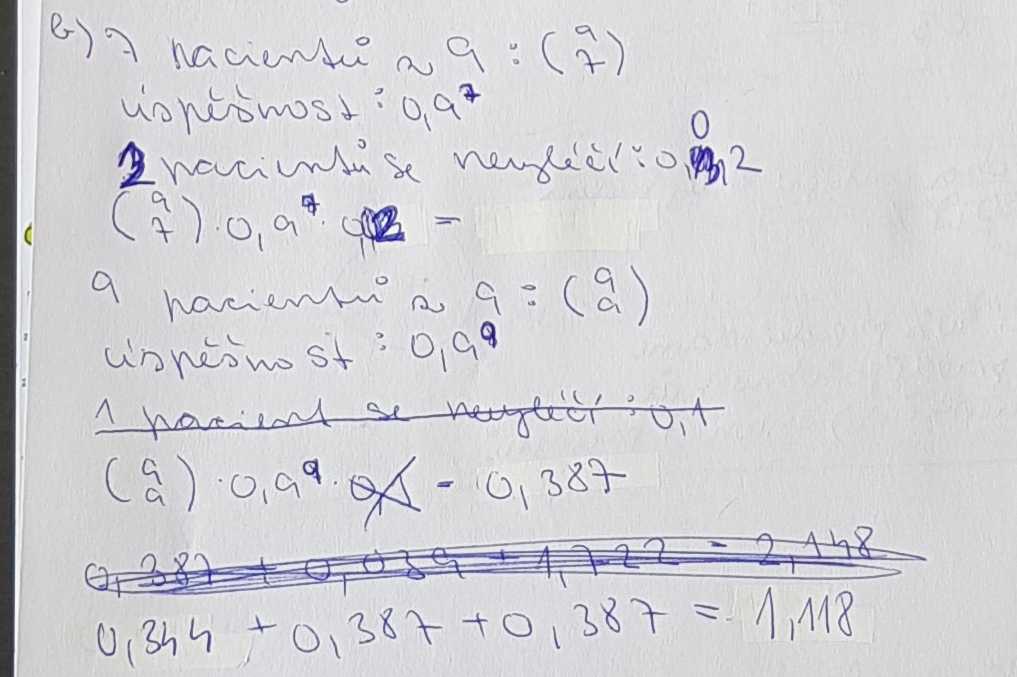 b) 7 pacientů z 9 : (9 7)
úspěšnost : 0,9^7
2 pacientů se nevyléčí : 0,02
(9 7) · 0,9^7 · =
9 pacientů z 9 : (9 9)
úspěšnost : 0,9^9
1 pacient se nevyléčí : 0,1
(9 9) · 0,9^9 · 0,1 = 0,387
0,387 + 0,039 + 1,722 = 2,148
0,344 + 0,387 + 0,387 = 1,118